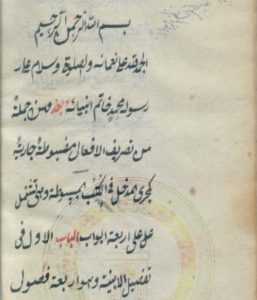 بسم الله الرحمن الرحيم
الحمد لله على نعمائه والصلوة وسلام على
رسوله محمد خاتم انبيائه فهن جملة
من تصريف الافعال مضبوطة جارية
مجرى مدخل فى الكتب المبسوطة وهى تشتمل
على اربعة ابواب الباب الاول فى
تفصيل الابنية وهو اربعة فصول